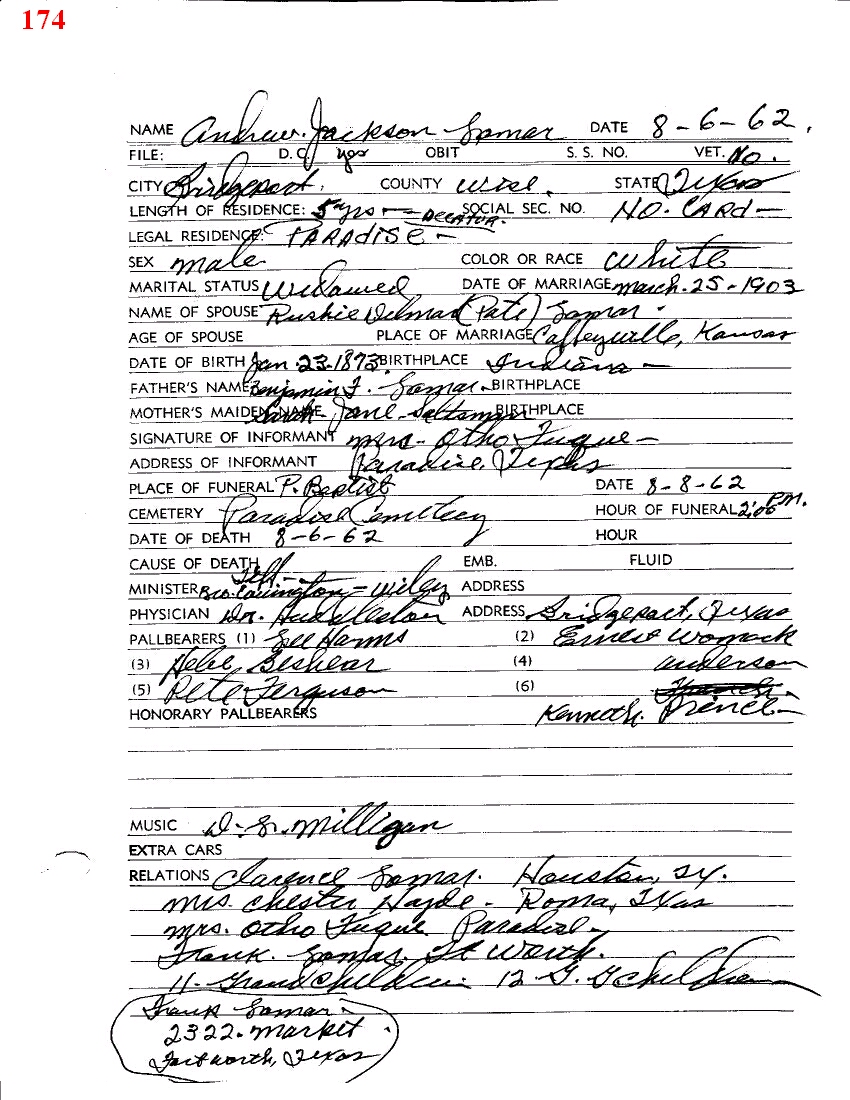 174
NAME Andrew Jackson Lamar DATE 8-6-62.
FILE: D.C. yes OBIT S. S. NO. VET. No.
CITY Bridgeport. COUNTY Wise. STATE Texas
LENGTH OF RESIDENCE: 5 yrs — DECATUR. SOCIAL SEC. NO. NO. CARD —
LEGAL RESIDENCE: PARADISE —
SEX male COLOR OR RACE White
MARITAL STATUS Widowed DATE OF MARRIAGE March. 25 - 1903
NAME OF SPOUSE (Pate) Lamar.
AGE OF SPOUSE PLACE OF MARRIAGE Coffeyville, Kansas
DATE OF BIRTH Jan. 23-1873. BIRTHPLACE Indiana —
FATHER'S NAME Benjamin F. Lamar. BIRTHPLACE
MOTHER'S MAIDEN NAME Sarah Jane BIRTHPLACE
SIGNATURE OF INFORMANT Mrs. Otho Fuque —
ADDRESS OF INFORMANT Paradise, Texas
PLACE OF FUNERAL P. Baptist DATE 8-8-62
CEMETERY Paradise Cemetery HOUR OF FUNERAL 2:00 P.M.
DATE OF DEATH 8-6-62 HOUR
CAUSE OF DEATH EMB. FLUID
MINISTER Bro. - Wiley ADDRESS
PHYSICIAN Dr. Huddleston ADDRESS Bridgeport, Texas
PALLBEARERS (1) Lee Harms (2) Ernest Womack
(3) Beshear (4) Anderson
(5) Pete Ferguson (6)
HONORARY PALLBEARERS Kenneth. Prince —
MUSIC D. L. Milligan
EXTRA CARS
RELATIONS Clarence Lamar. Houston, Tx.
Mrs. Chester Hayde - Roma, Texas
Mrs. Otho Fuque Paradise —
Frank. Lamar. Ft Worth.
11 - Grandchildren 12 G. Gchildren
Frank Lamar.
2322. Market.
Fort Worth, Texas